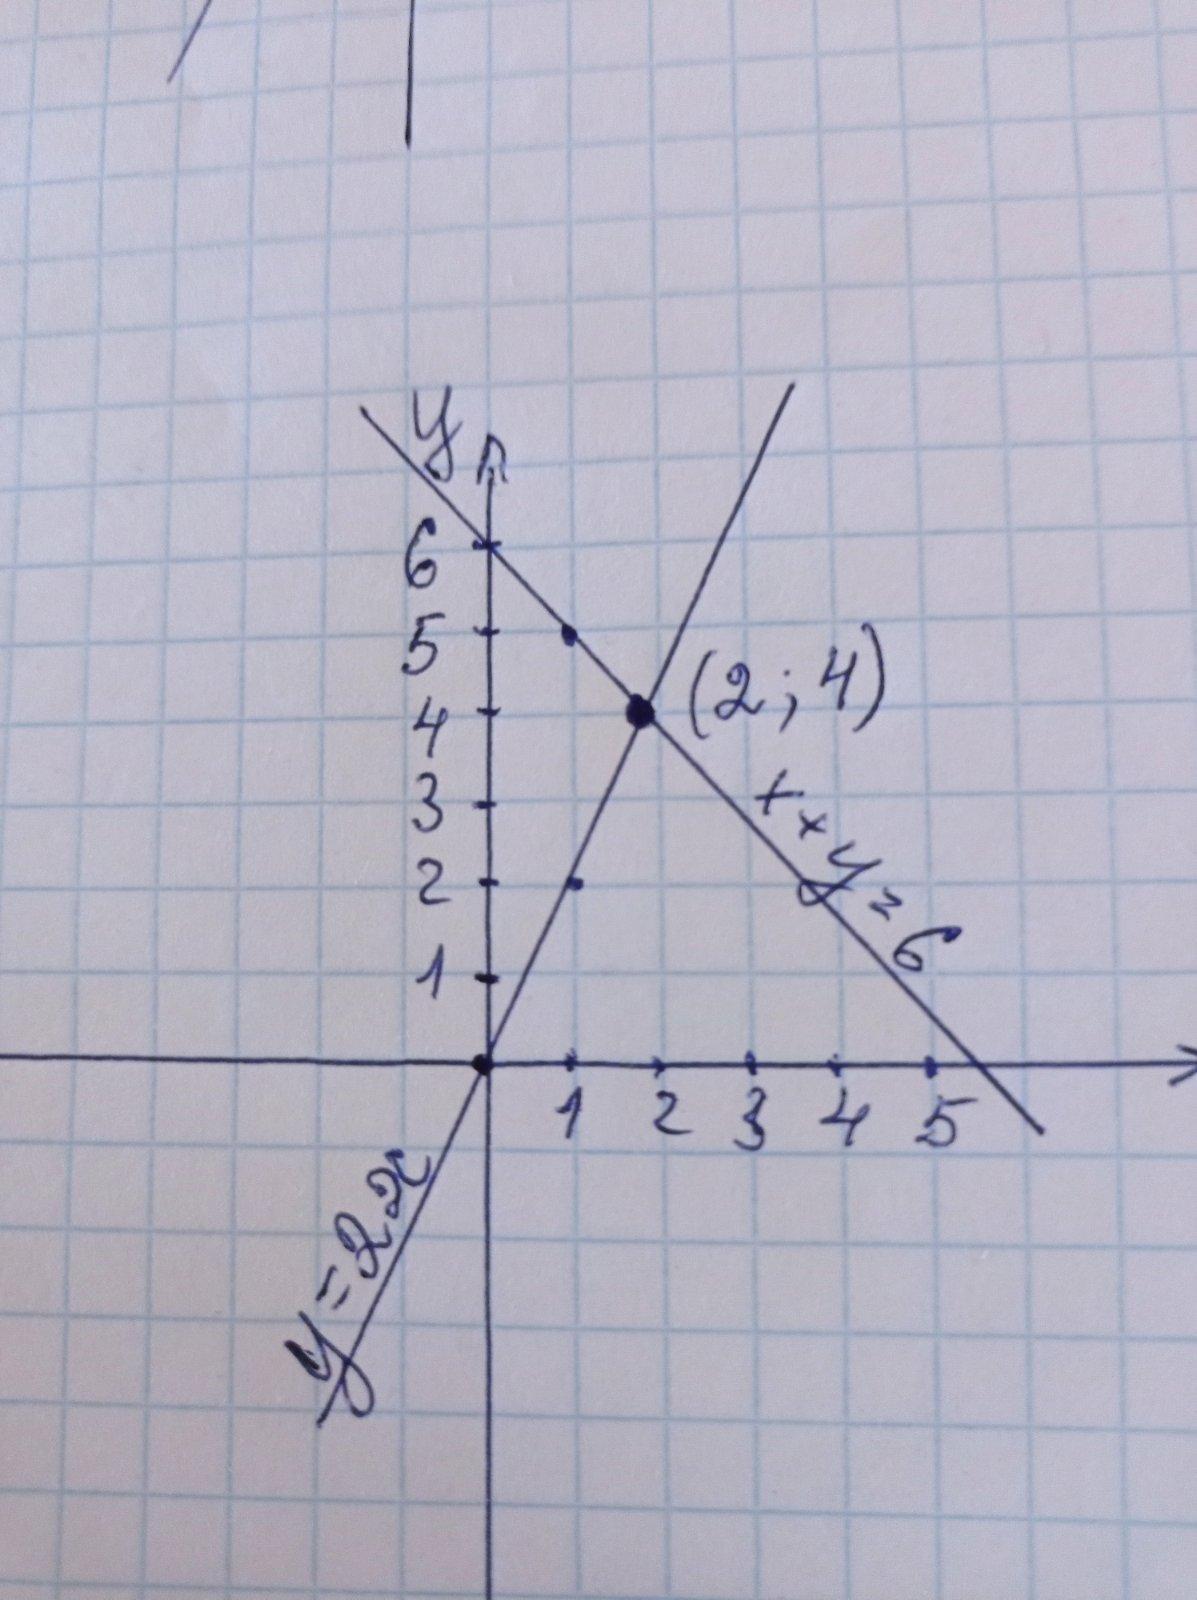 y
6
5
4
3
2
1
(2; 4)
x+y=6
1 2 3 4 5
y=2x